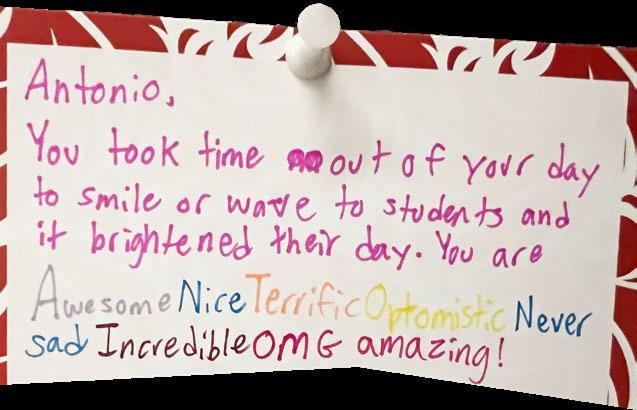 Antonio,
You took time out of your day
to smile or wave to students and
it brightened their day. You are
Awesome Nice Terrific Optomistic Never
sad Incredible OMG amazing!